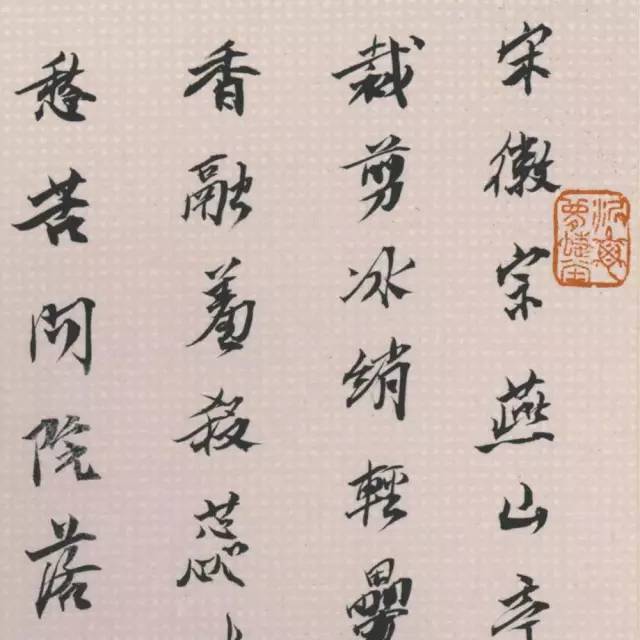 宋徽宗燕山亭
裁剪冰綃輕疊
香融羞殺蕊
愁苦問院落